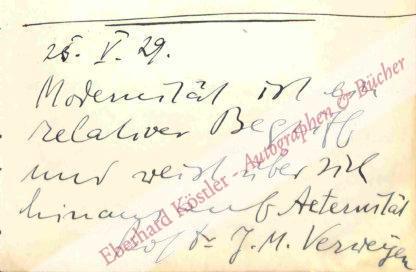 25. V. 29.
Modernität ist ein
relativer Begriff
und weist über sich
hinaus auf Aeternität
Prof Dr J. M. Verweyen
Eberhard Köstler - Autographen & Bücher